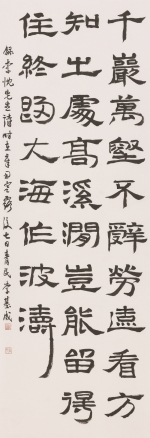 千巖萬壑不辭勞遠看方
知出處高溪澗豈能留得
住終歸大海作波濤
錄李忱先生詩時在辛丑後七日青民李基成